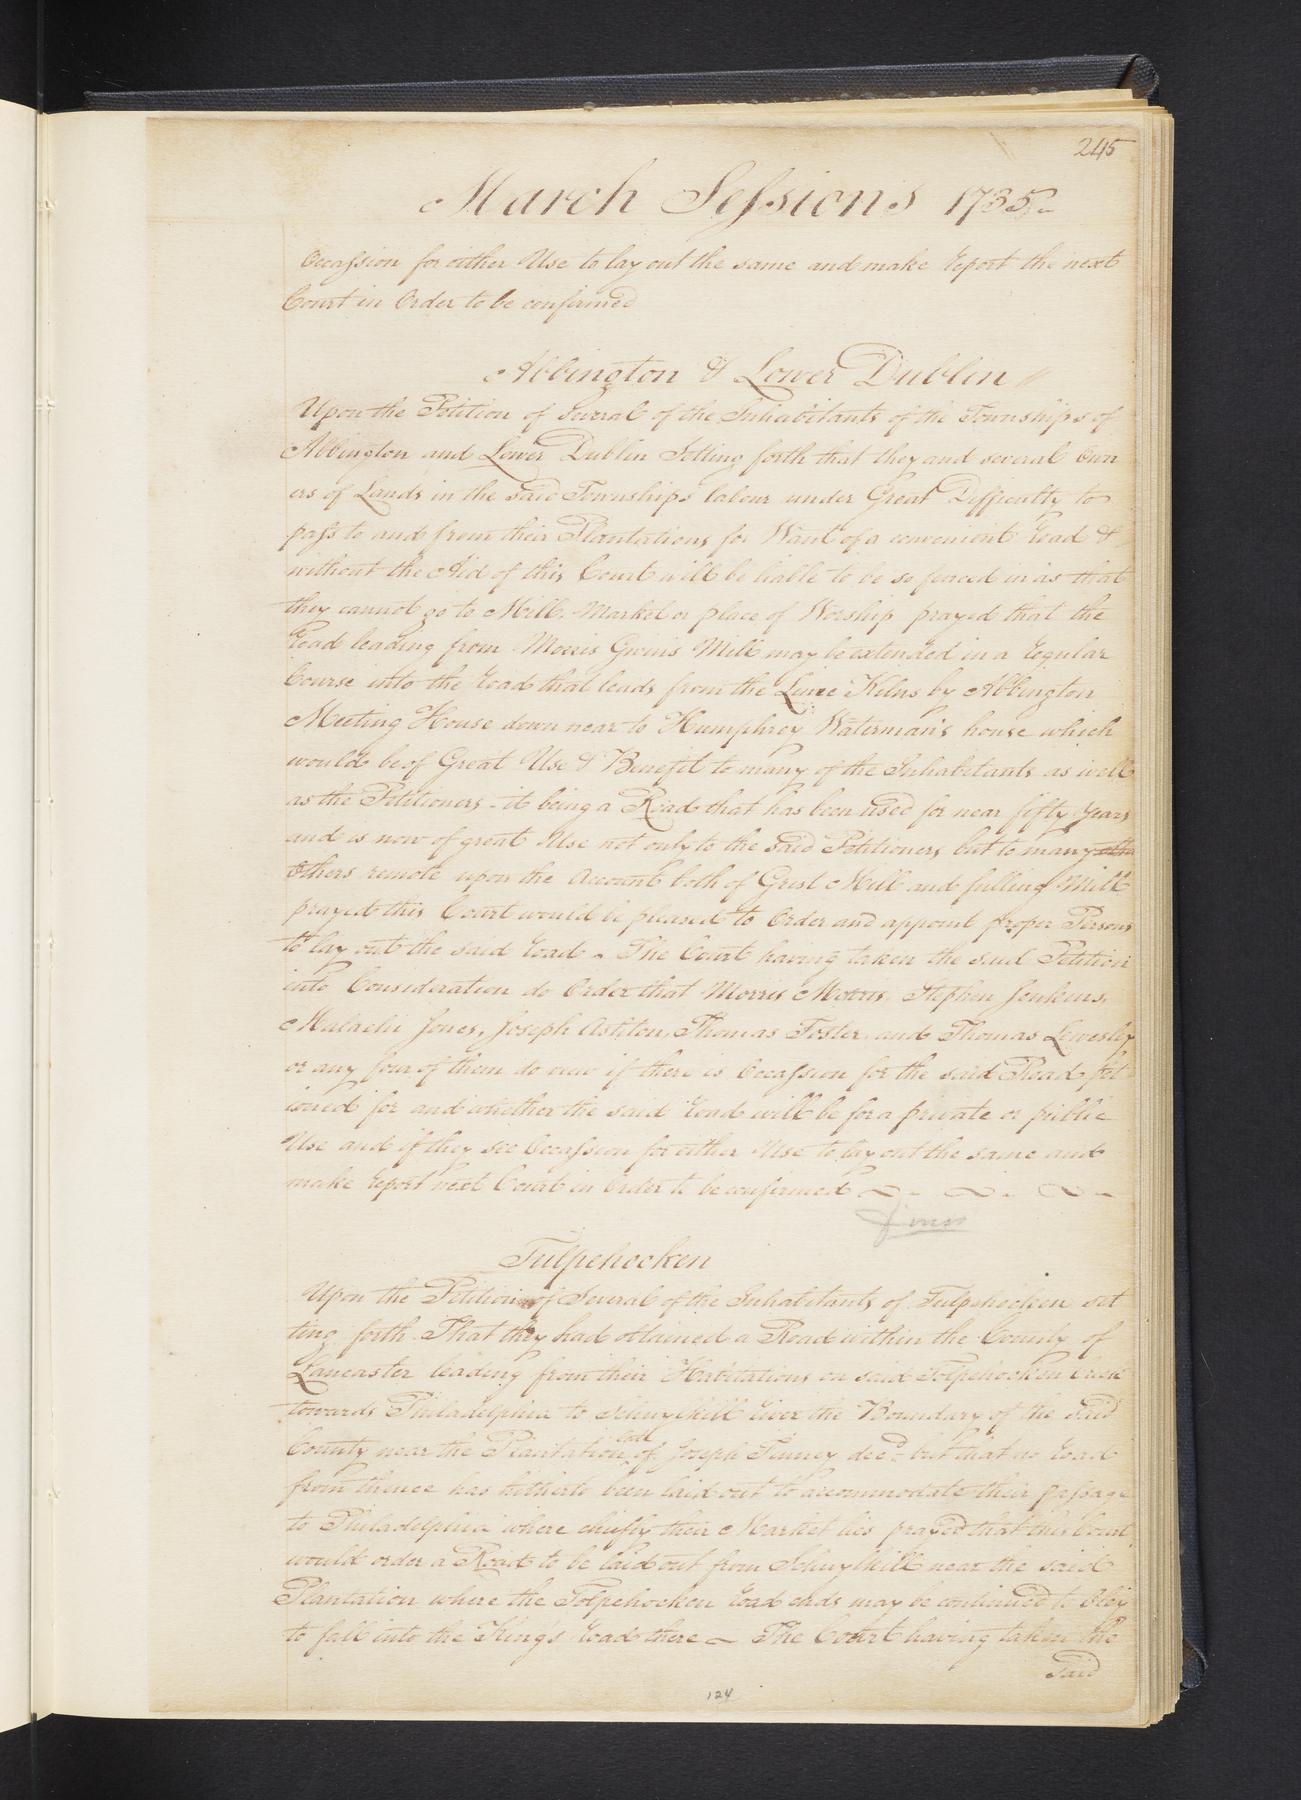 245
March Sessions 1735
Occassion for either Use to lay out the same and make Report the next
Court in Order to be confirmed
Abbington & Lower Dublin
Upon the Petition of Several of the Inhabitants of the Townships of
Abbington and Lower Dublin Setting forth that they and several Own
ers of Lands in the said Townships labour under Great Difficulty to
pass to and from their Plantations for Want of a convenient Road &
without the Aid of this Court will be liable to be so fenced in as that
they cannot go to Mill, Market or place of Worship prayed that the
Road leading from Morris Gwin's Mill may be extended in a regular
Course into the Road that leads from the Lime Kilns by Abbington
Meeting House down near to Humphrey Waterman's house which
would be of Great Use & Benefit to many of the Inhabitants as well
as the Petitioners - it being a Road that has been used for near fifty Years
and is now of great Use not only to the said Petitioners but to many
Others remote upon the Account both of Grist Mill and fulling Mill
prayed this Court would be pleased to Order and appoint proper Persons
to lay out the said Road - The Court having taken the said Petition
into Consideration do Order that Morris Morris, Stephen Jenkins,
Malachi Jones, Joseph Ashton, Thomas Foster and Thomas Lewesley
or any four of them do view if there is Occassion for the said Road pet
ioned for and whether the said Road will be for a private or public
Use and if they see Occassion for either Use to lay out the same and
make Report next Court in Order to be confirmed
Tulpehocken
Upon the Petition of Several of the Inhabitants of Tulpehocken set
ting forth That they had obtained a Road within the County of
Lancaster leading from their Habitations on said Tolpehocken Creek
towards Philadelphia to Schuylkill River the Boundary of the said
County near the Plantation late of Joseph Finney decd - but that no Road
from thence has hitherto been laid out to accommodate their passage
to Philadelphia where chiefly their Market lies prayed that this Court
would order a Road to be laid out from Schuylkill near the said
Plantation where the Tolpehocken Road ends may be continued to Oley
to fall into the King's Road there - The Court having taken the
Said
124